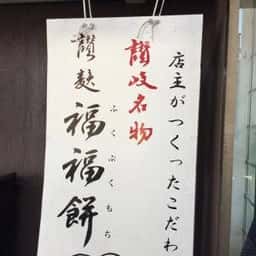 店主がつくったこだわ
讃岐名物
讃麩福福餅
ふくぷくもち